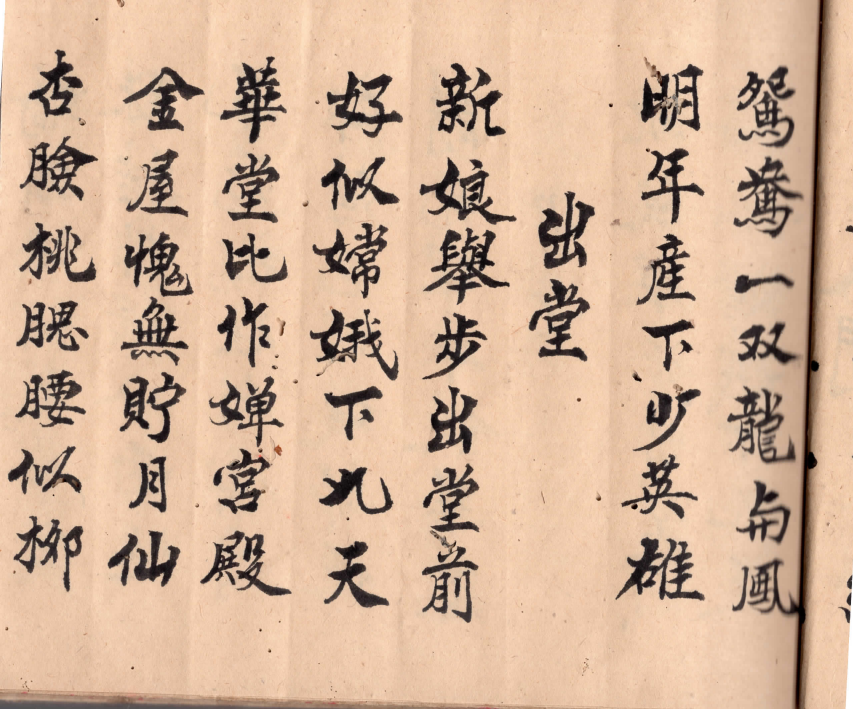 鴛鴦一双龍與鳳
明年產下少英雄
出堂
新娘舉步出堂前
好似嫦娥下九天
華堂比作婵宮殿
金屋愧無貯月仙
杏臉桃腮腰似柳